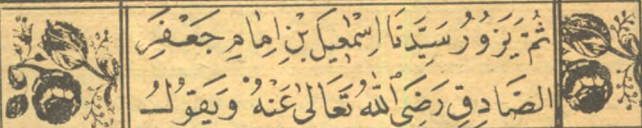 ثُمَّ يَزُورُ سَيِّدَنَا اِسْمٰعِيلَ بْنِ اِمَامِ جَعْفَرِ
الصَّادِقِ رَضِىَ اللّٰهُ تَعَالٰى عَنْهُ وَيَقُولُ